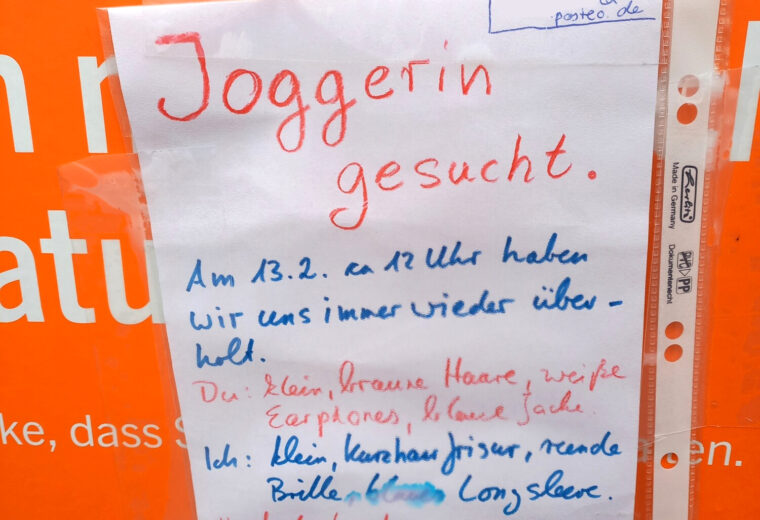 posteo.de
Joggerin
gesucht.
Am 13.2. ca 12 Uhr haben
wir uns immer wieder über-
holt.
Du: klein, braune Haare, weiße
Earphones, blaue Jacke.
Ich: klein, Kurzhaarfrisur, runde
Brille, blaues Longsleeve.
Made in Germany
Dokumentenecht
PP
atu
ke, dass S
en.